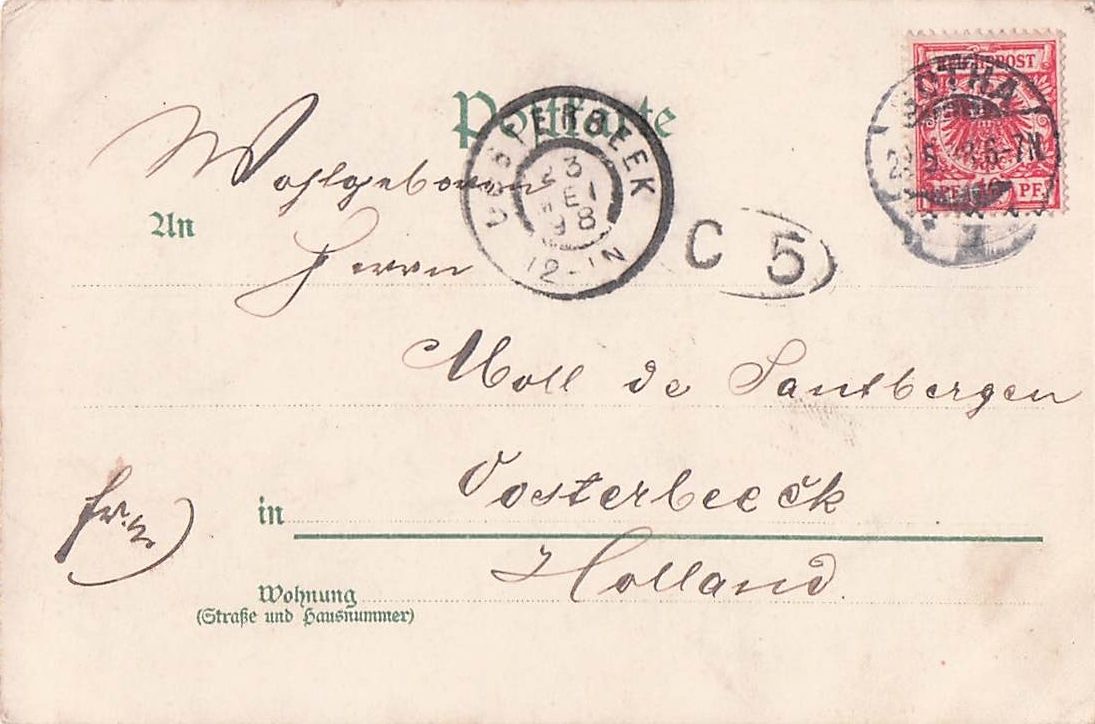 Postkarte
REICHSPOST
GOTHA
6-7N.
10 PF.
OOSTERBEEK
23
MEI
98
12-1N
C 5
Wohlgeboren
An
Herrn
Moll de Santbergen
Oosterbeeck
in
Holland.
Wohnung
(Straße und Hausnummer)